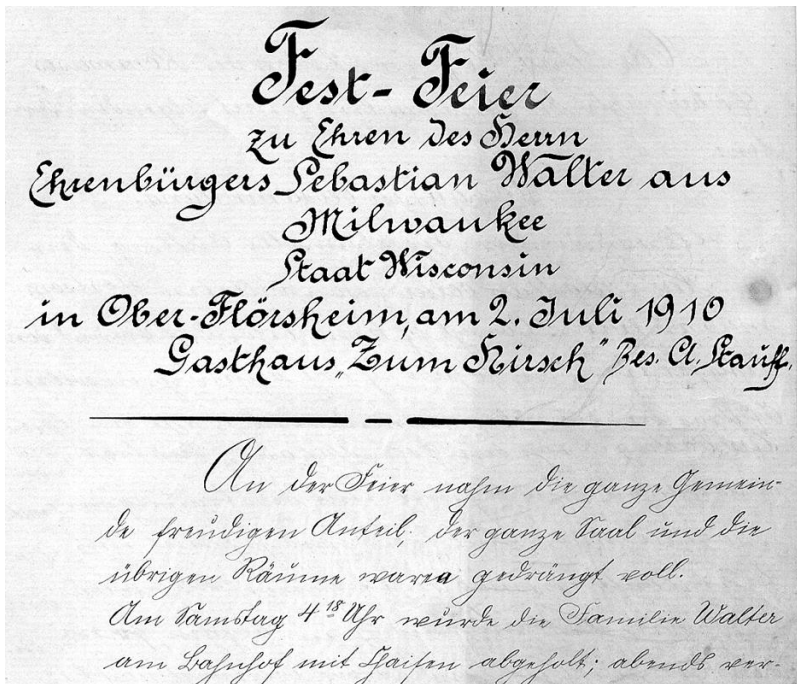 Fest-Feier
zu Ehren des Herrn
Ehrenbürgers Sebastian Walter aus
Milwaukee
Staat Wisconsin
in Ober-Flörsheim, am 2. Juli 1910
Gasthaus „Zum Hirsch" Bes. Cl. Stauff.
An der Feier nahm die ganze Gemein-
de freudigen Anteil, der ganze Saal und die
übrigen Räume waren gedrängt voll.
Am Samstag 4 18 Uhr wurde die Familie Walter
am Bahnhof mit Chaisen abgeholt; abends ver-